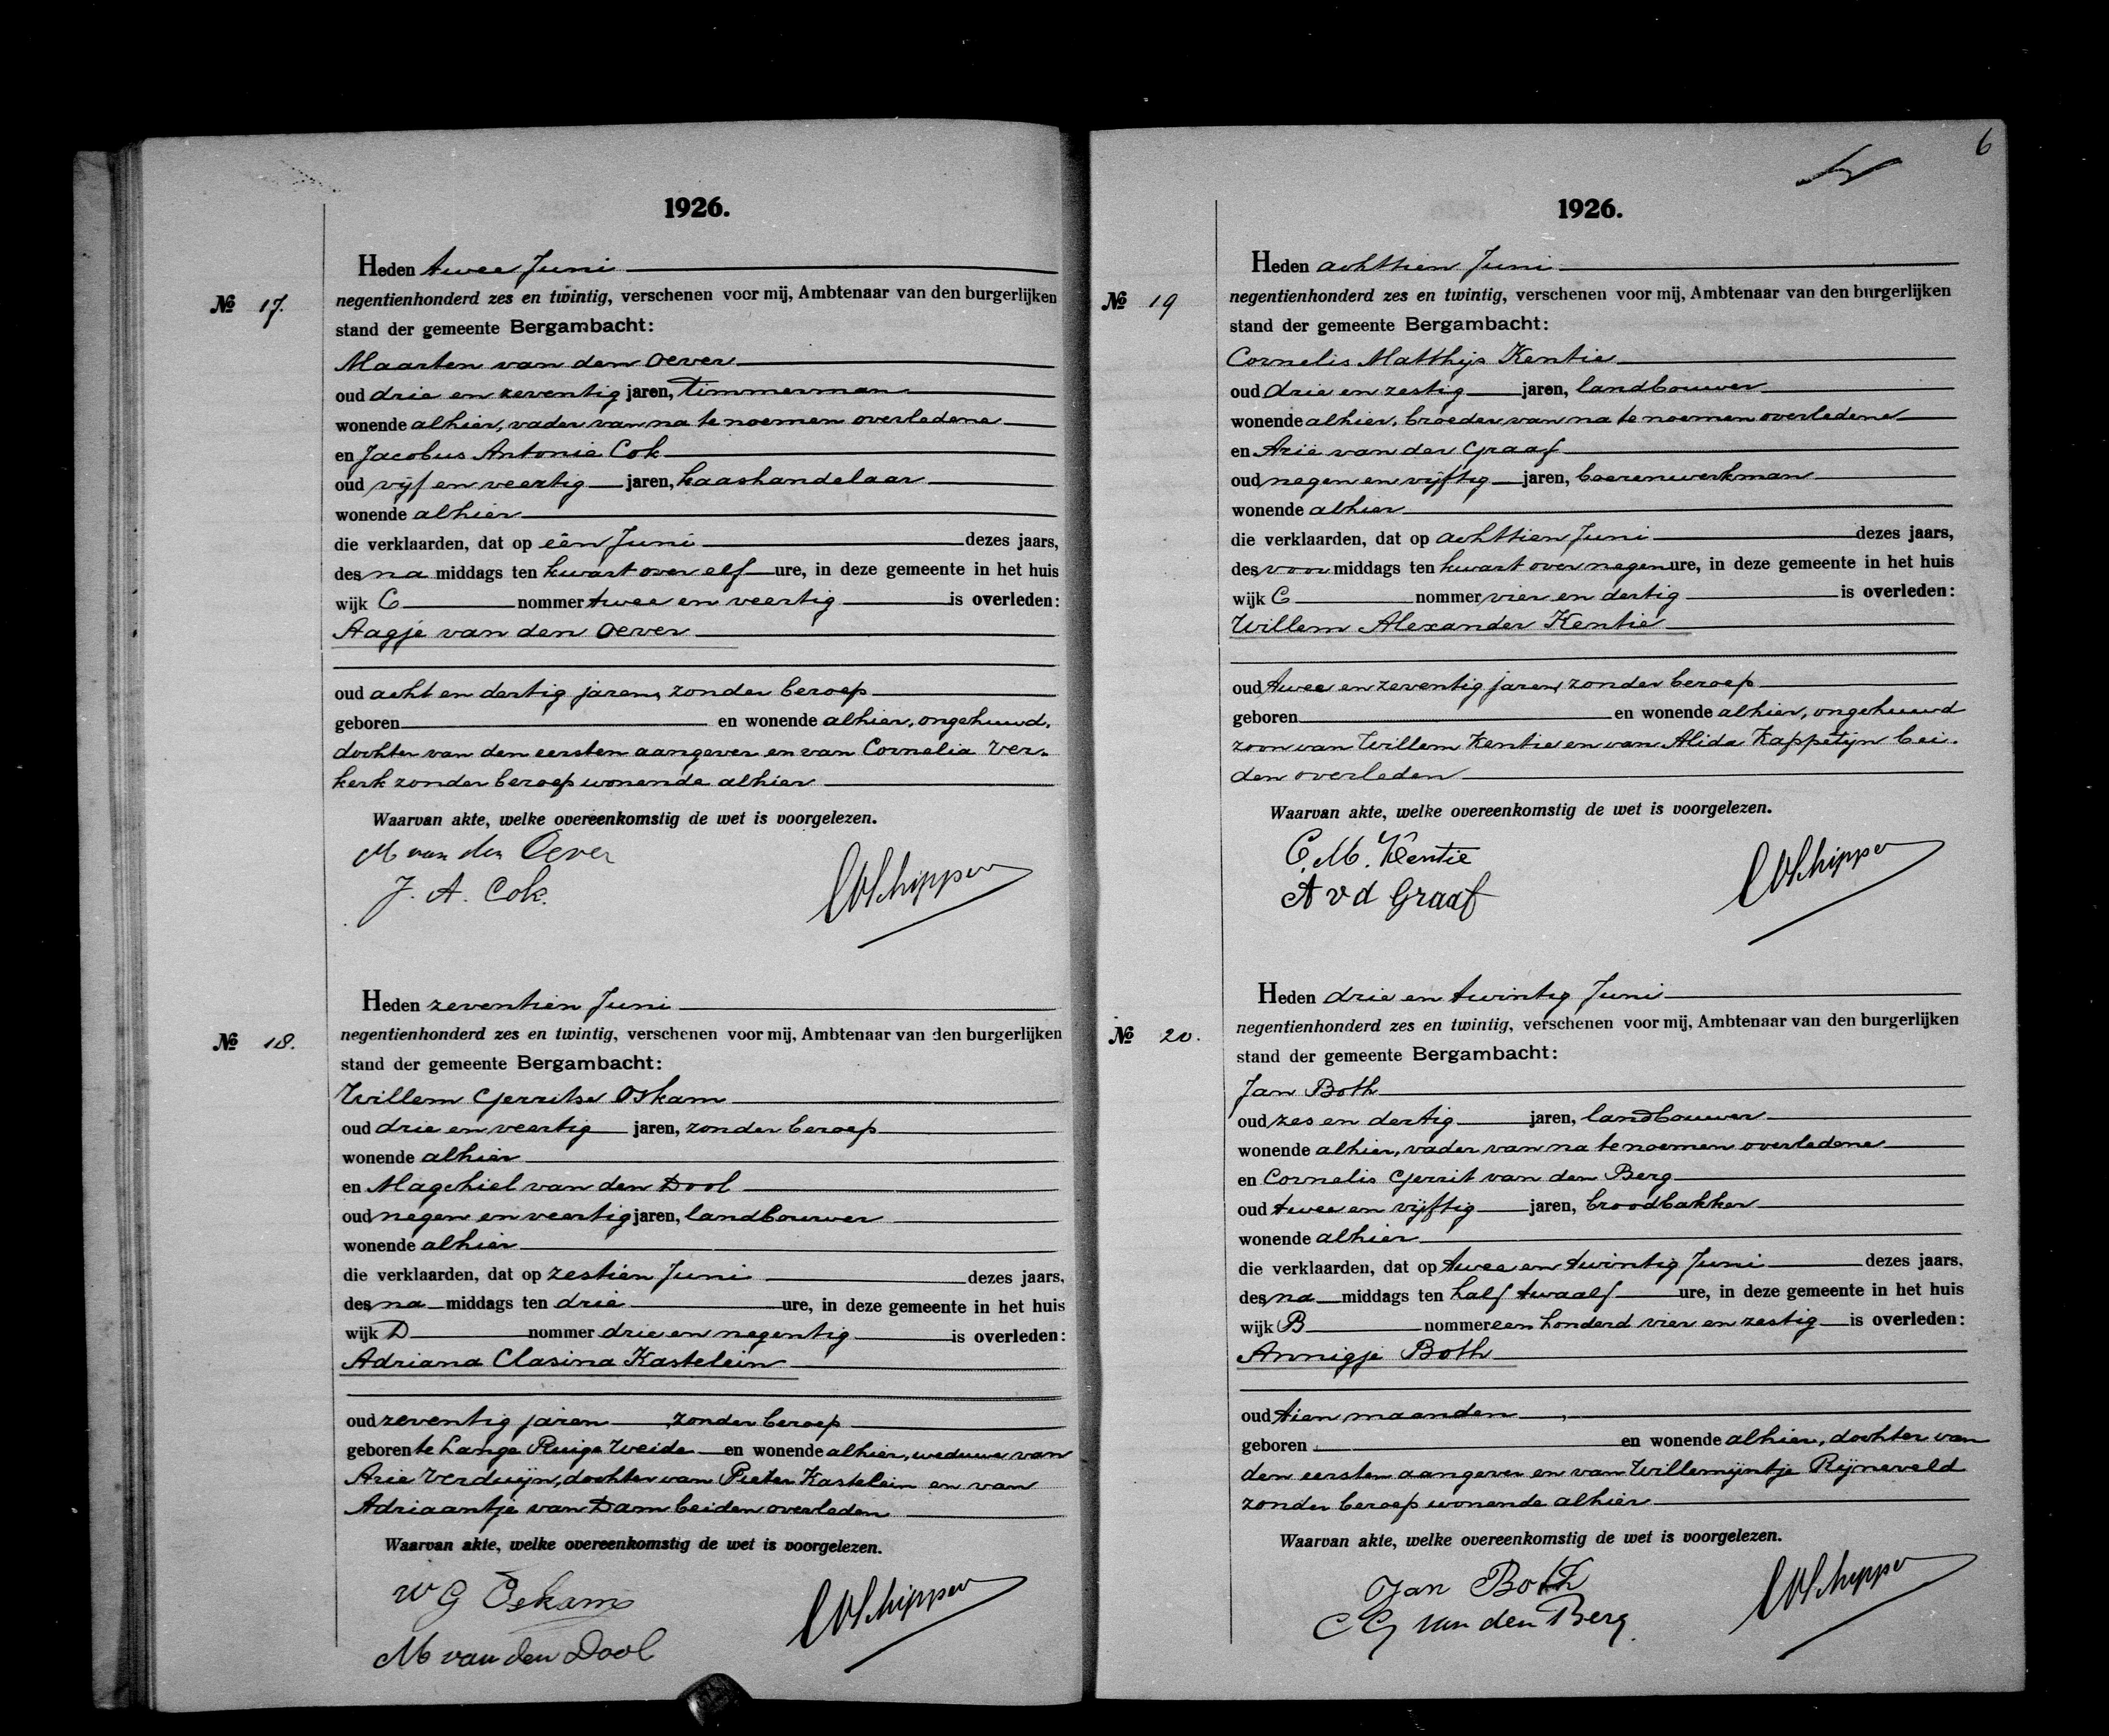 1926.
Heden twee Juni
№ 17.
negentienhonderd zes en twintig, verschenen voor mij, Ambtenaar van den burgerlijken
stand der gemeente Bergambacht:
Maarten van den Oever
oud drie en zeventig jaren, timmerman
wonende alhier, vader van na te noemen overledene
en Jacobus Antonie Cok
oud vijf en veertig jaren, kaashandelaar
wonende alhier
die verklaarden, dat op één Juni dezes jaars,
des na middags ten kwart over elf ure, in deze gemeente in het huis
wijk C nommer twee en veertig is overleden:
Aagje van den Oever
oud acht en dertig jaren, zonder beroep
geboren en wonende alhier, ongehuwd,
dochter van den eersten aangever en van Cornelia Ver-
kerk zonder beroep wonende alhier
Waarvan akte, welke overeenkomstig de wet is voorgelezen.
M van den Oever
J. A. Cok.
Schipper
Heden zeventien Juni
№ 18.
negentienhonderd zes en twintig, verschenen voor mij, Ambtenaar van den burgerlijken
stand der gemeente Bergambacht:
Willem Gerritse Oskam
oud drie en veertig jaren, zonder beroep
wonende alhier
en Magchiel van den Dool
oud negen en veertig jaren, landbouwer
wonende alhier
die verklaarden, dat op zestien Juni dezes jaars,
des na middags ten drie ure, in deze gemeente in het huis
wijk D nommer drie en negentig is overleden:
Adriana Clasina Kastelein
oud zeventig jaren, zonder beroep
geboren te Lange Ruige Weide en wonende alhier, weduwe van
Arie Verduijn, dochter van Pieter Kastelein en van
Adriaantje van Dam beiden overleden
Waarvan akte, welke overeenkomstig de wet is voorgelezen.
W G Oskam
M van den Dool
Schipper
6
1926.
Heden achttien Juni
№ 19
negentienhonderd zes en twintig, verschenen voor mij, Ambtenaar van den burgerlijken
stand der gemeente Bergambacht:
Cornelis Matthijs Kentie
oud drie en zestig jaren, landbouwer
wonende alhier, broeder van na te noemen overledene
en Arie van der Graaf
oud negen en vijftig jaren, boerenwerkman
wonende alhier
die verklaarden, dat op achttien Juni dezes jaars,
des voor middags ten kwart over negen ure, in deze gemeente in het huis
wijk C nommer vier en dertig is overleden:
Willem Alexander Kentie
oud twee en zeventig jaren, zonder beroep
geboren en wonende alhier, ongehuwd
zoon van Willem Kentie en van Alida Kappetijn bei-
den overleden
Waarvan akte, welke overeenkomstig de wet is voorgelezen.
C. M. Kentie
A v d Graaf
Schipper
Heden drie en twintig Juni
№ 20.
negentienhonderd zes en twintig, verschenen voor mij, Ambtenaar van den burgerlijken
stand der gemeente Bergambacht:
Jan Both
oud zes en dertig jaren, landbouwer
wonende alhier, vader van na te noemen overledene
en Cornelis Gerrit van den Berg
oud twee en vijftig jaren, broodbakker
wonende alhier
die verklaarden, dat op twee en twintig Juni dezes jaars,
des na middags ten half twaalf ure, in deze gemeente in het huis
wijk B nommer een honderd vier en zestig is overleden:
Annigje Both
oud tien maanden,
geboren en wonende alhier, dochter van
den eersten aangever en van Willemijntje Rijneveld
zonder beroep wonende alhier
Waarvan akte, welke overeenkomstig de wet is voorgelezen.
Jan Both
C G van den Berg.
Schipper